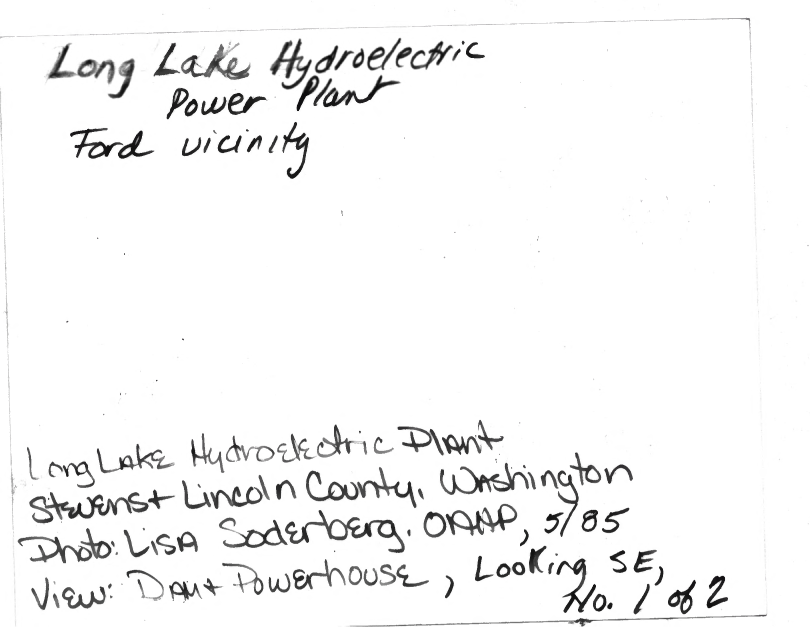 Long Lake Hydroelectric
Power Plant
Ford vicinity
Long Lake Hydroelectric Plant
Stevens + Lincoln County, Washington
Photo: Lisa Soderberg, OAHP, 5/85
View: Dam + Powerhouse, Looking SE,
No. 1 of 2